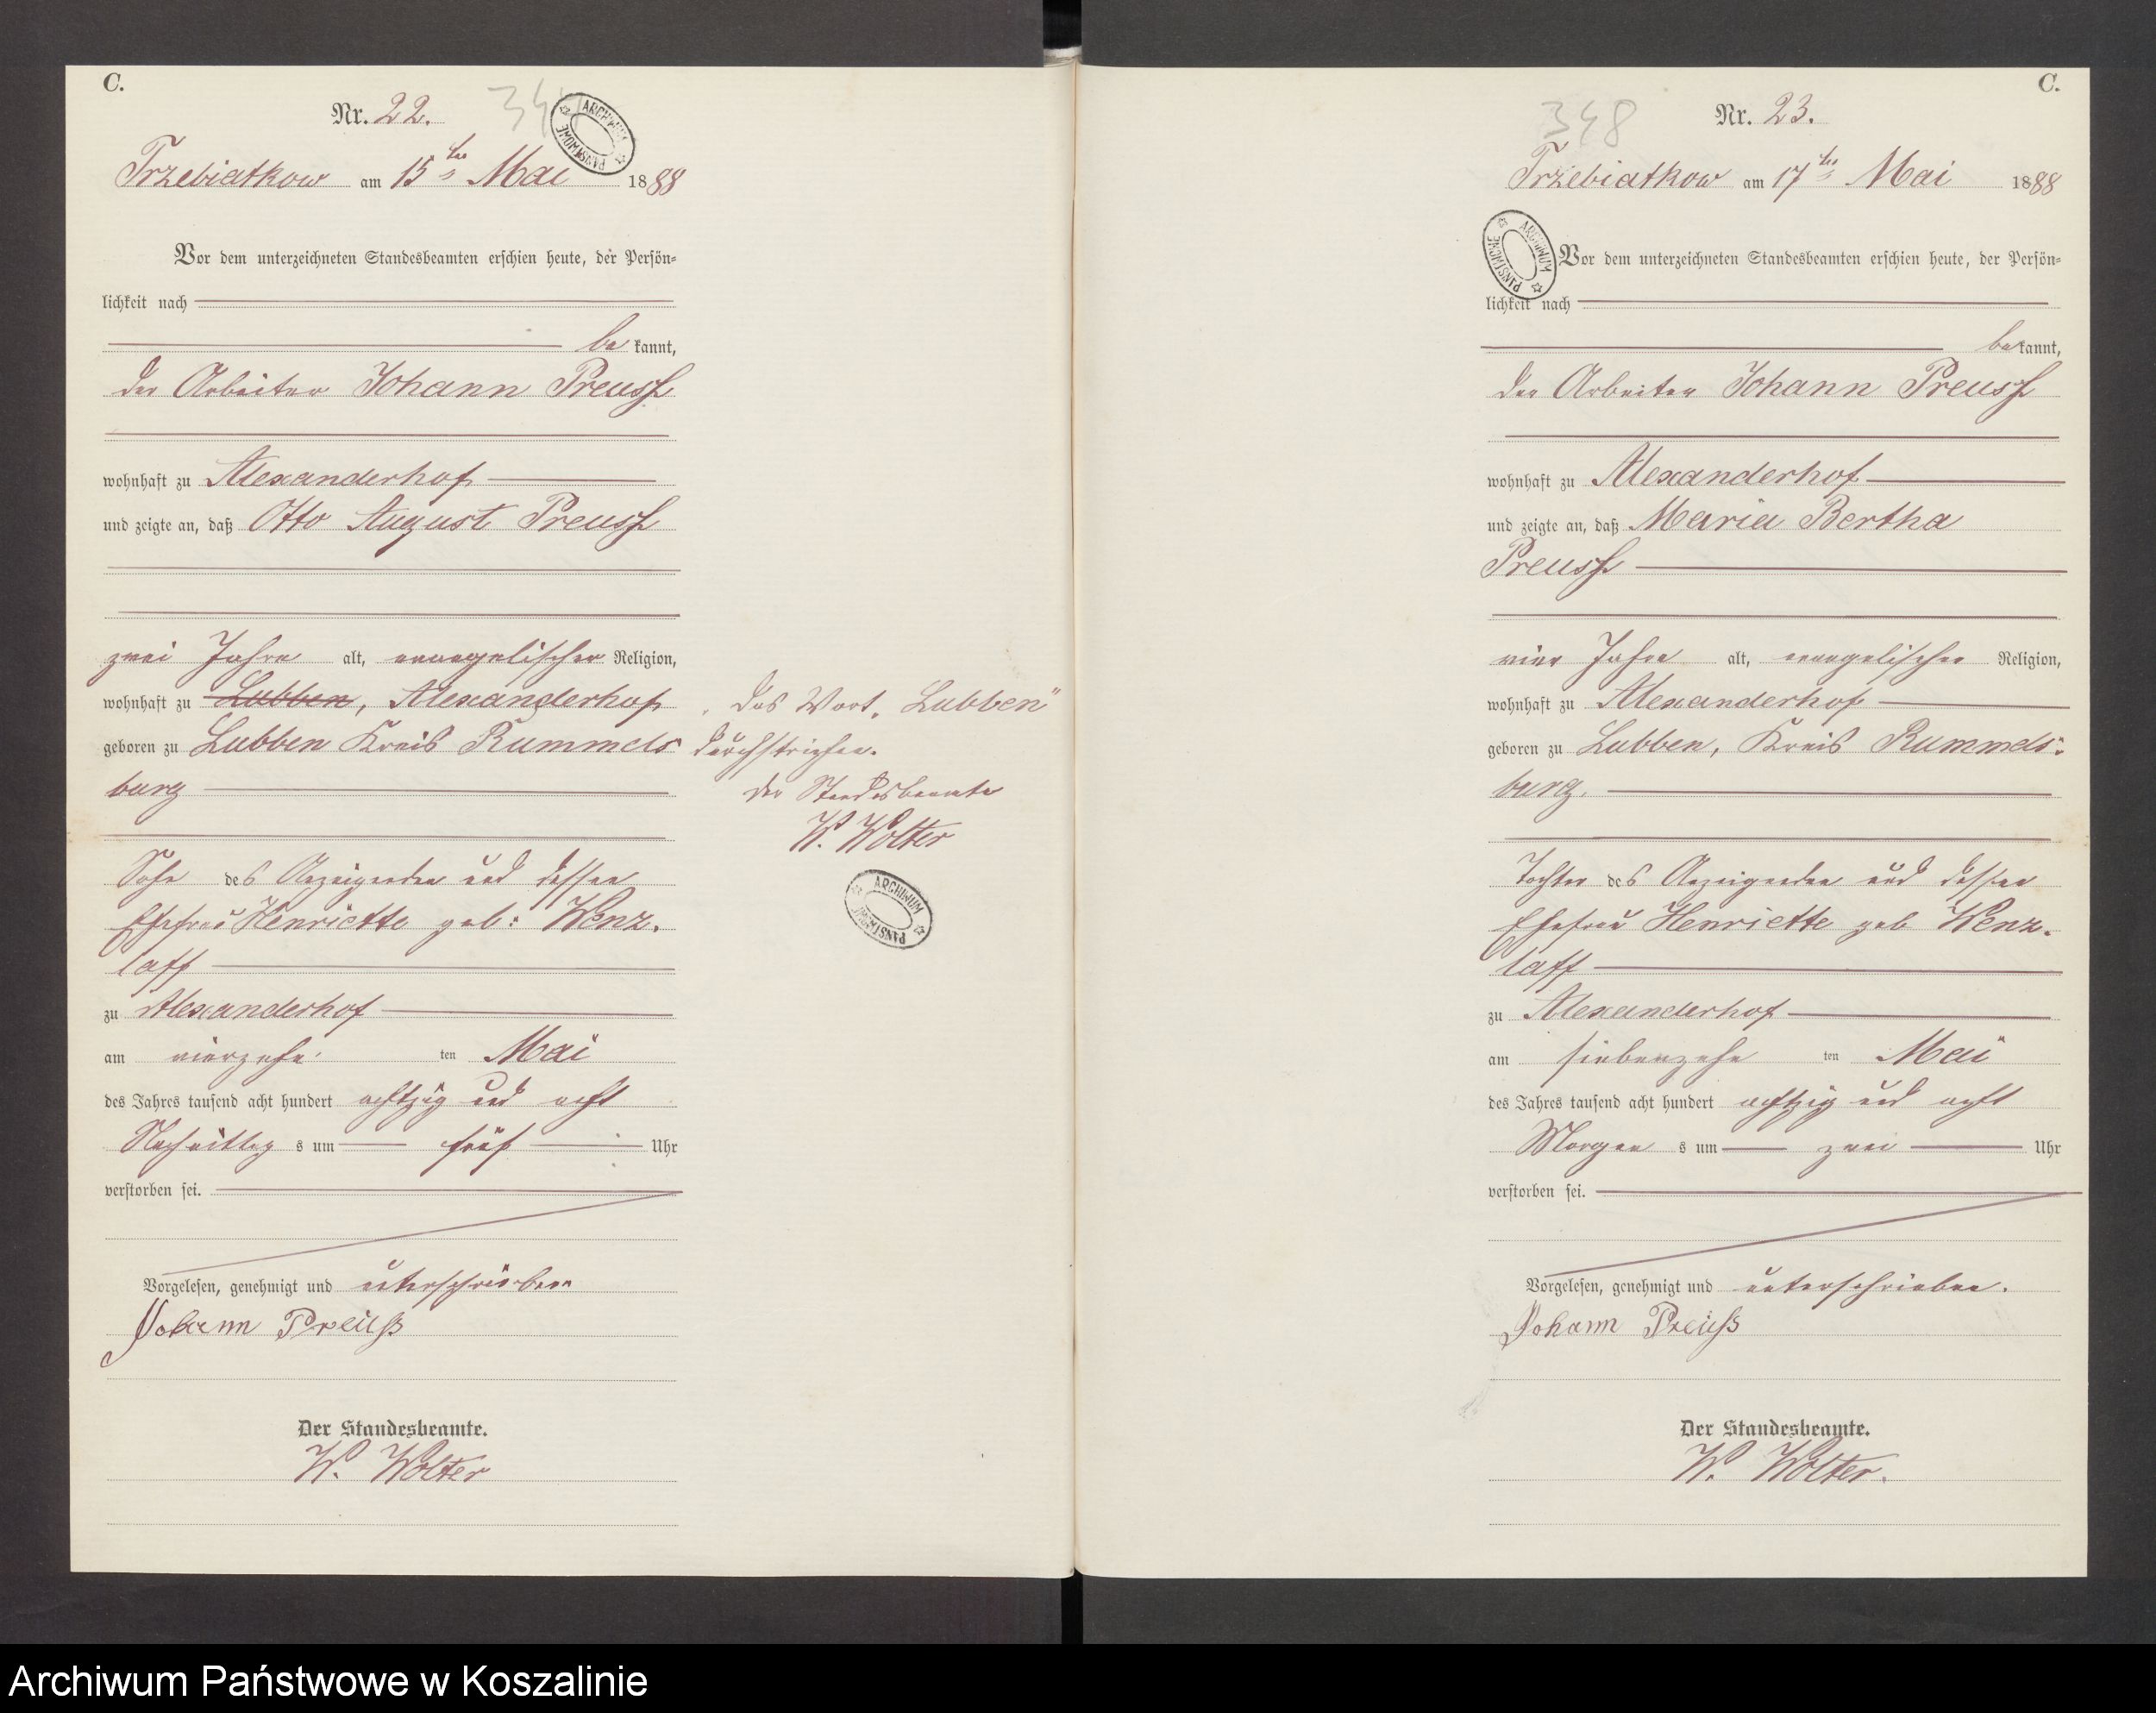 C.
Nr. 22.
ARCHIWUM PAŃSTWOWE
Trzebiatkow am 15ten Mai 1888
Vor dem unterzeichneten Standesbeamten erschien heute, der Persön-
lichkeit nach
be kannt,
der Arbeiter Johann Preuss
wohnhaft zu Alexanderhof
und zeigte an, daß Otto August Preuss
zwei Jahre alt, evangelischer Religion,
wohnhaft zu Lubben, Alexanderhof
geboren zu Lubben Kreis Rummels
burg
Sohn des Anzeigenden und dessen
Ehefrau Henriette geb: Wenz-
laff
zu Alexanderhof
am vierzehn ten Mai
des Jahres tausend acht hundert achtzig und acht
Nachmittag s um fünf Uhr
verstorben sei.
Vorgelesen, genehmigt und unterschrieben
Johann Preuß
Der Standesbeamte.
W. Wolter
Das Wort „Lubben"
durchstrichen.
Der Standesbeamte
W. Wolter
ARCHIWUM PAŃSTWOWE
C.
348
Nr. 23.
Trzebiatkow am 17ten Mai 1888
ARCHIWUM PAŃSTWOWE
Vor dem unterzeichneten Standesbeamten erschien heute, der Persön-
lichkeit nach
be kannt,
der Arbeiter Johann Preuss
wohnhaft zu Alexanderhof
und zeigte an, daß Maria Bertha
Preuss
vier Jahre alt, evangelischer Religion,
wohnhaft zu Alexanderhof
geboren zu Lubben, Kreis Rummels-
burg.
Tochter des Anzeigenden und dessen
Ehefrau Henriette geb Wenz-
laff
zu Alexanderhof
am siebenzehn ten Mai
des Jahres tausend acht hundert achtzig und acht
Morgen s um zwei Uhr
verstorben sei.
Vorgelesen, genehmigt und unterschrieben.
Johann Preuß
Der Standesbeamte.
W. Wolter.
Archiwum Państwowe w Koszalinie